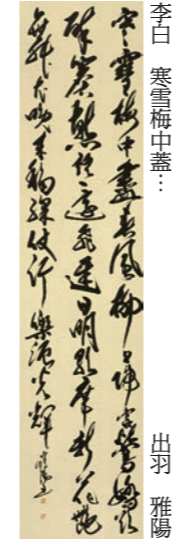 李白　寒雪梅中蓋…　出羽　雅陽
寒雪梅中盡春風柳上歸宮鶯嬌欲
醉簷燕語還飛遲日明歌席新花艷
舞衣晚来移綵仗行樂泥光輝